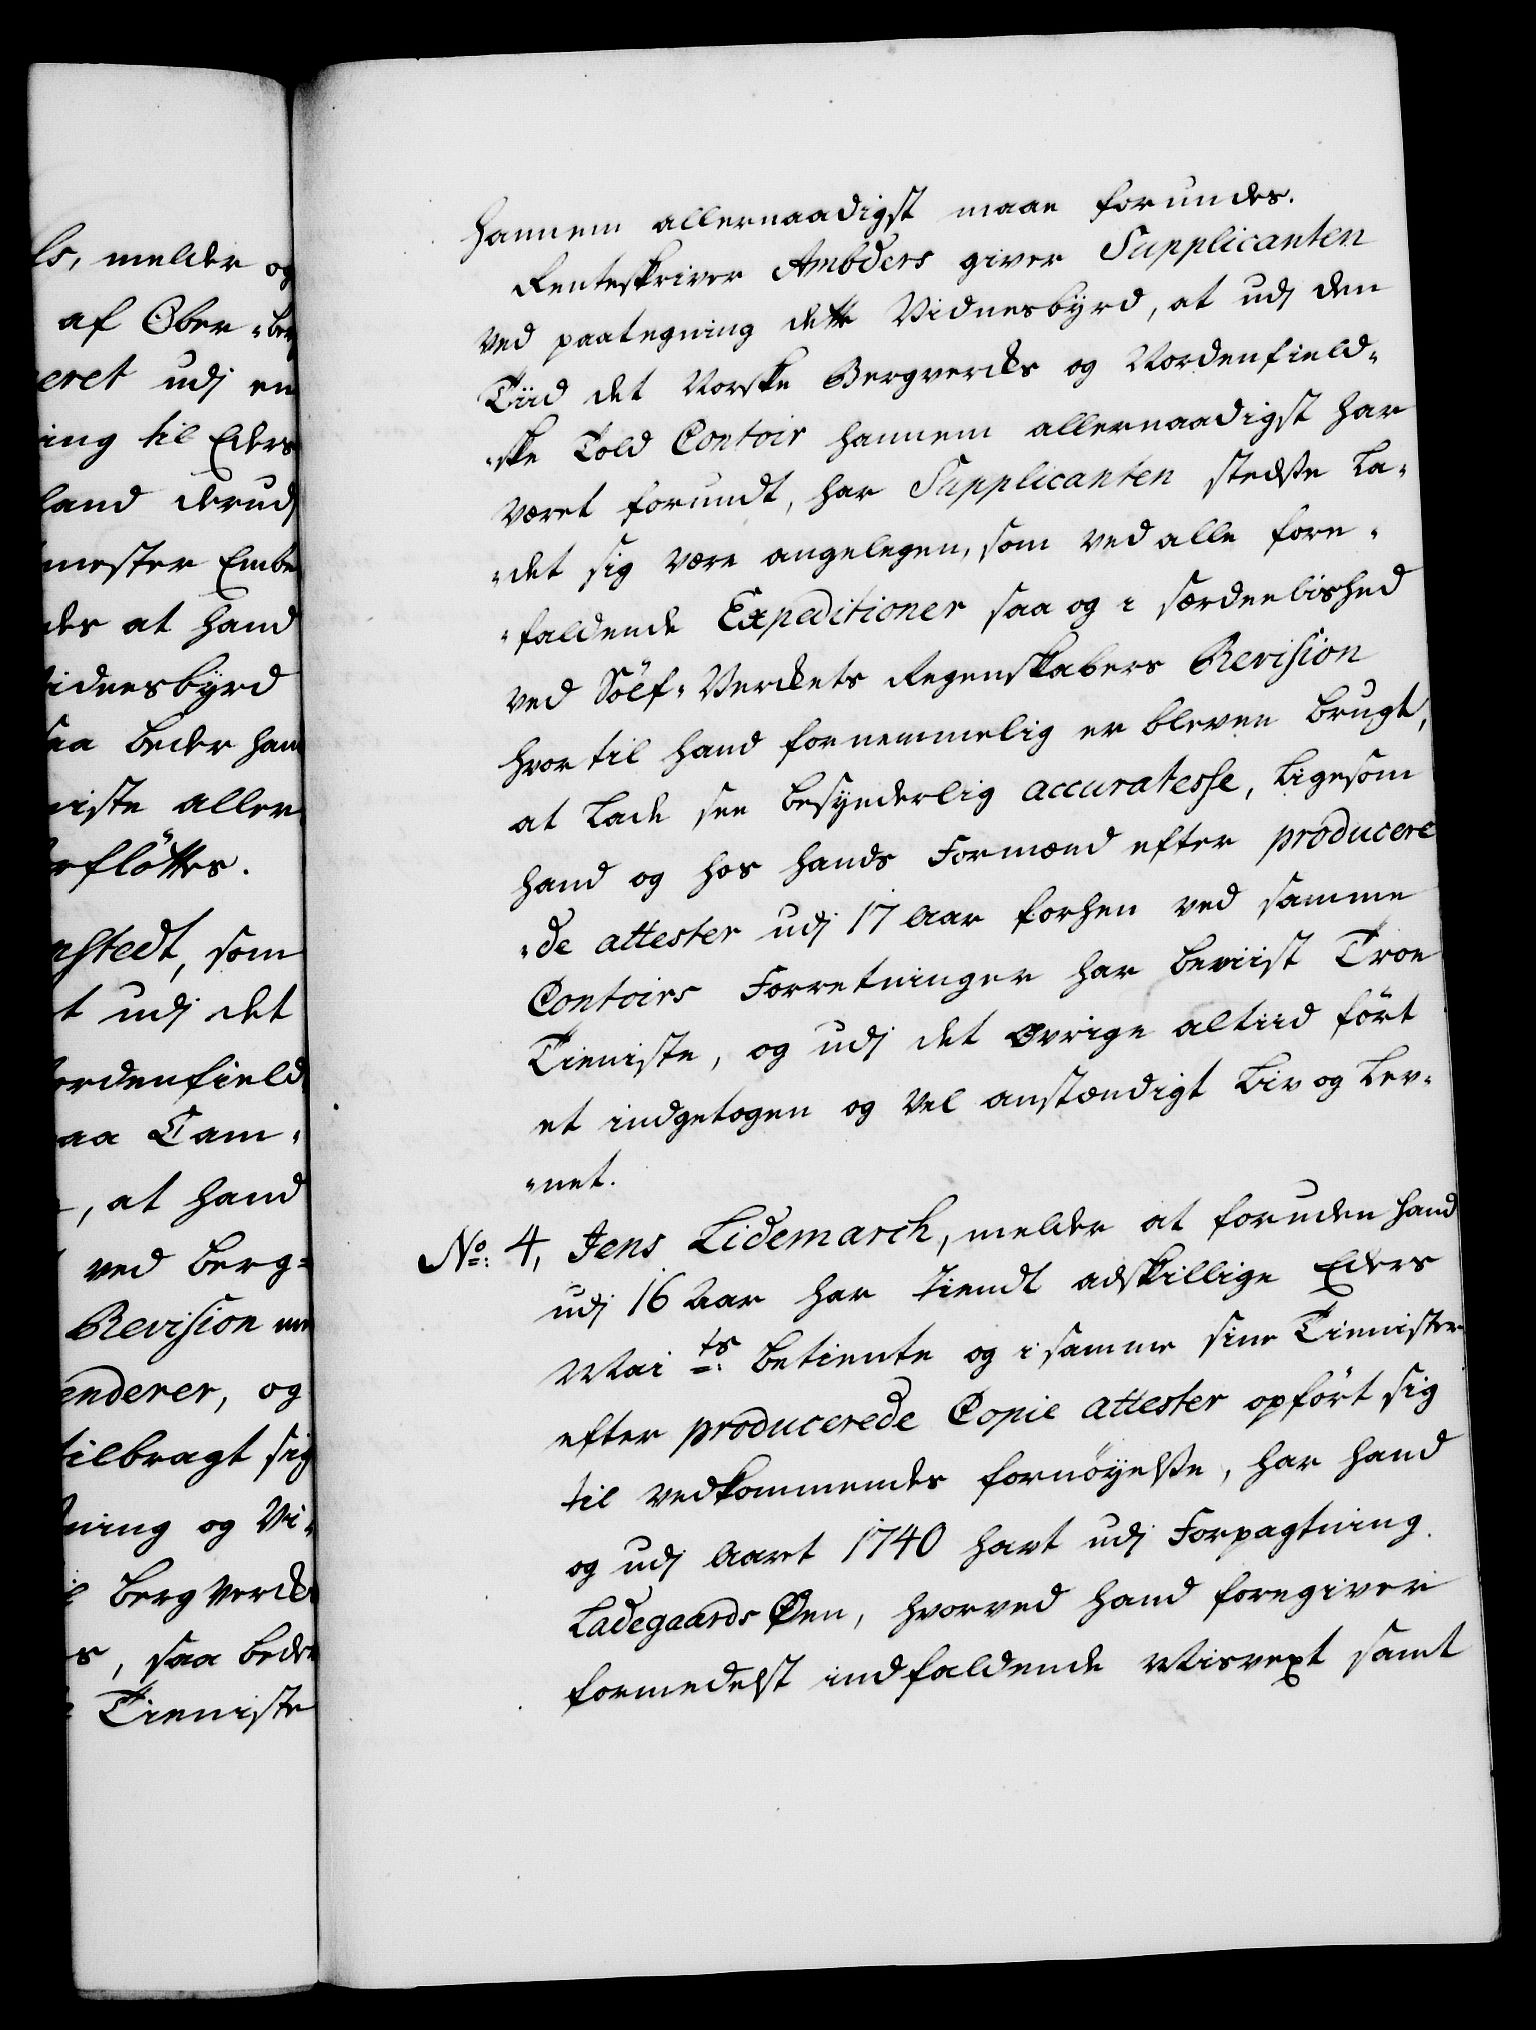 ls, melder og
af Ober-ber
eret udj en
ing til Eders
land derudj
mester Embe
des at hand
idnesbyrd
saa beder han
niste aller
rfløttes.
nstedt, som
t udj det
ordenfield
aa Cam-
, at hand
ved Berg-
Revision
enderer, og
tilbragt sig
ning og Vi-
Bergverks
s, saa beder
Tieniste
hannem allernaadigst maae forundes.
Renteskriver Ambders giver Supplicanten
ved paategning dette Vidnesbyrd, at udj den
Tiid det Norske Bergverks og Nordenfield-
-ske Told Contoir hannem allernaadigst har
været forundt, har Supplicanten stedsse la-
-det sig være angelegen, som ved alle fore-
-faldende Expeditioner saa og i særdeelished
ved Sölf-Verkets Regenskabers Revision
hvortil hand fornemmelig er bleven brugt,
at lade see besynderlig accuratesse, ligesom
hand og hos hands Formænd efter producere
-de attester udj 17 Aar forhen ved samme
Contoirs Forretninger har beviist Troe
Tieniste, og udj det øvrige altiid fört
et indgetogen og vel anstændigt Liv og Lev-
-net.
No: 4, Jens Lidemarch, melder at foruden hand
udj 16 Aar har tiendt adskillige Eders
Maits: betiente og i samme sine Tienister
efter producerede Copie attester opfört sig
til vedkommendes fornöyelsse, har hand
og udj Aaret 1740 havt udj Forpagtning
Ladegaards Øen, hvorved hand foregiver
formedelst indfaldende Misvext samt